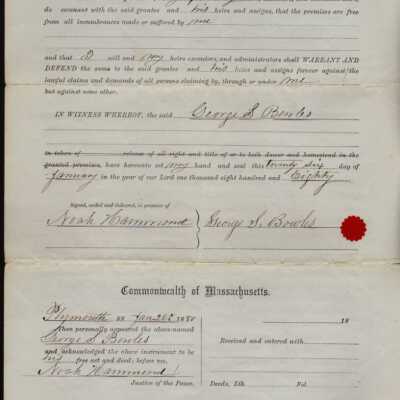 do covenant with the said grantee and his heirs and assigns, that the premises are free
from all incumbrances made or suffered by me
and that I will and my heirs executors, and administrators shall WARRANT AND
DEFEND the same to the said grantee and his heirs and assigns forever against the
lawful claims and demands of all persons claiming by, through or under me
but against none other.
IN WITNESS WHEREOF, the said George S Bowles
in token of release of all right and title of or to both dower and homestead in the
granted premises, have hereunto set my hand and seal this twenty six day of
January in the year of our Lord one thousand eight hundred and Eighty
Signed, sealed and delivered, in presence of
Noah Hammond } George S. Bowles
Commonwealth of Massachusetts.
Plymouth ss Jan 26th 1880
then personally appeared the above-named
George S Bowles
and acknowledged the above instrument to be
his free act and deed; before me,
Noah Hammond
Justice of the Peace.
18
Received and entered with
Deeds, Lib. Fol.